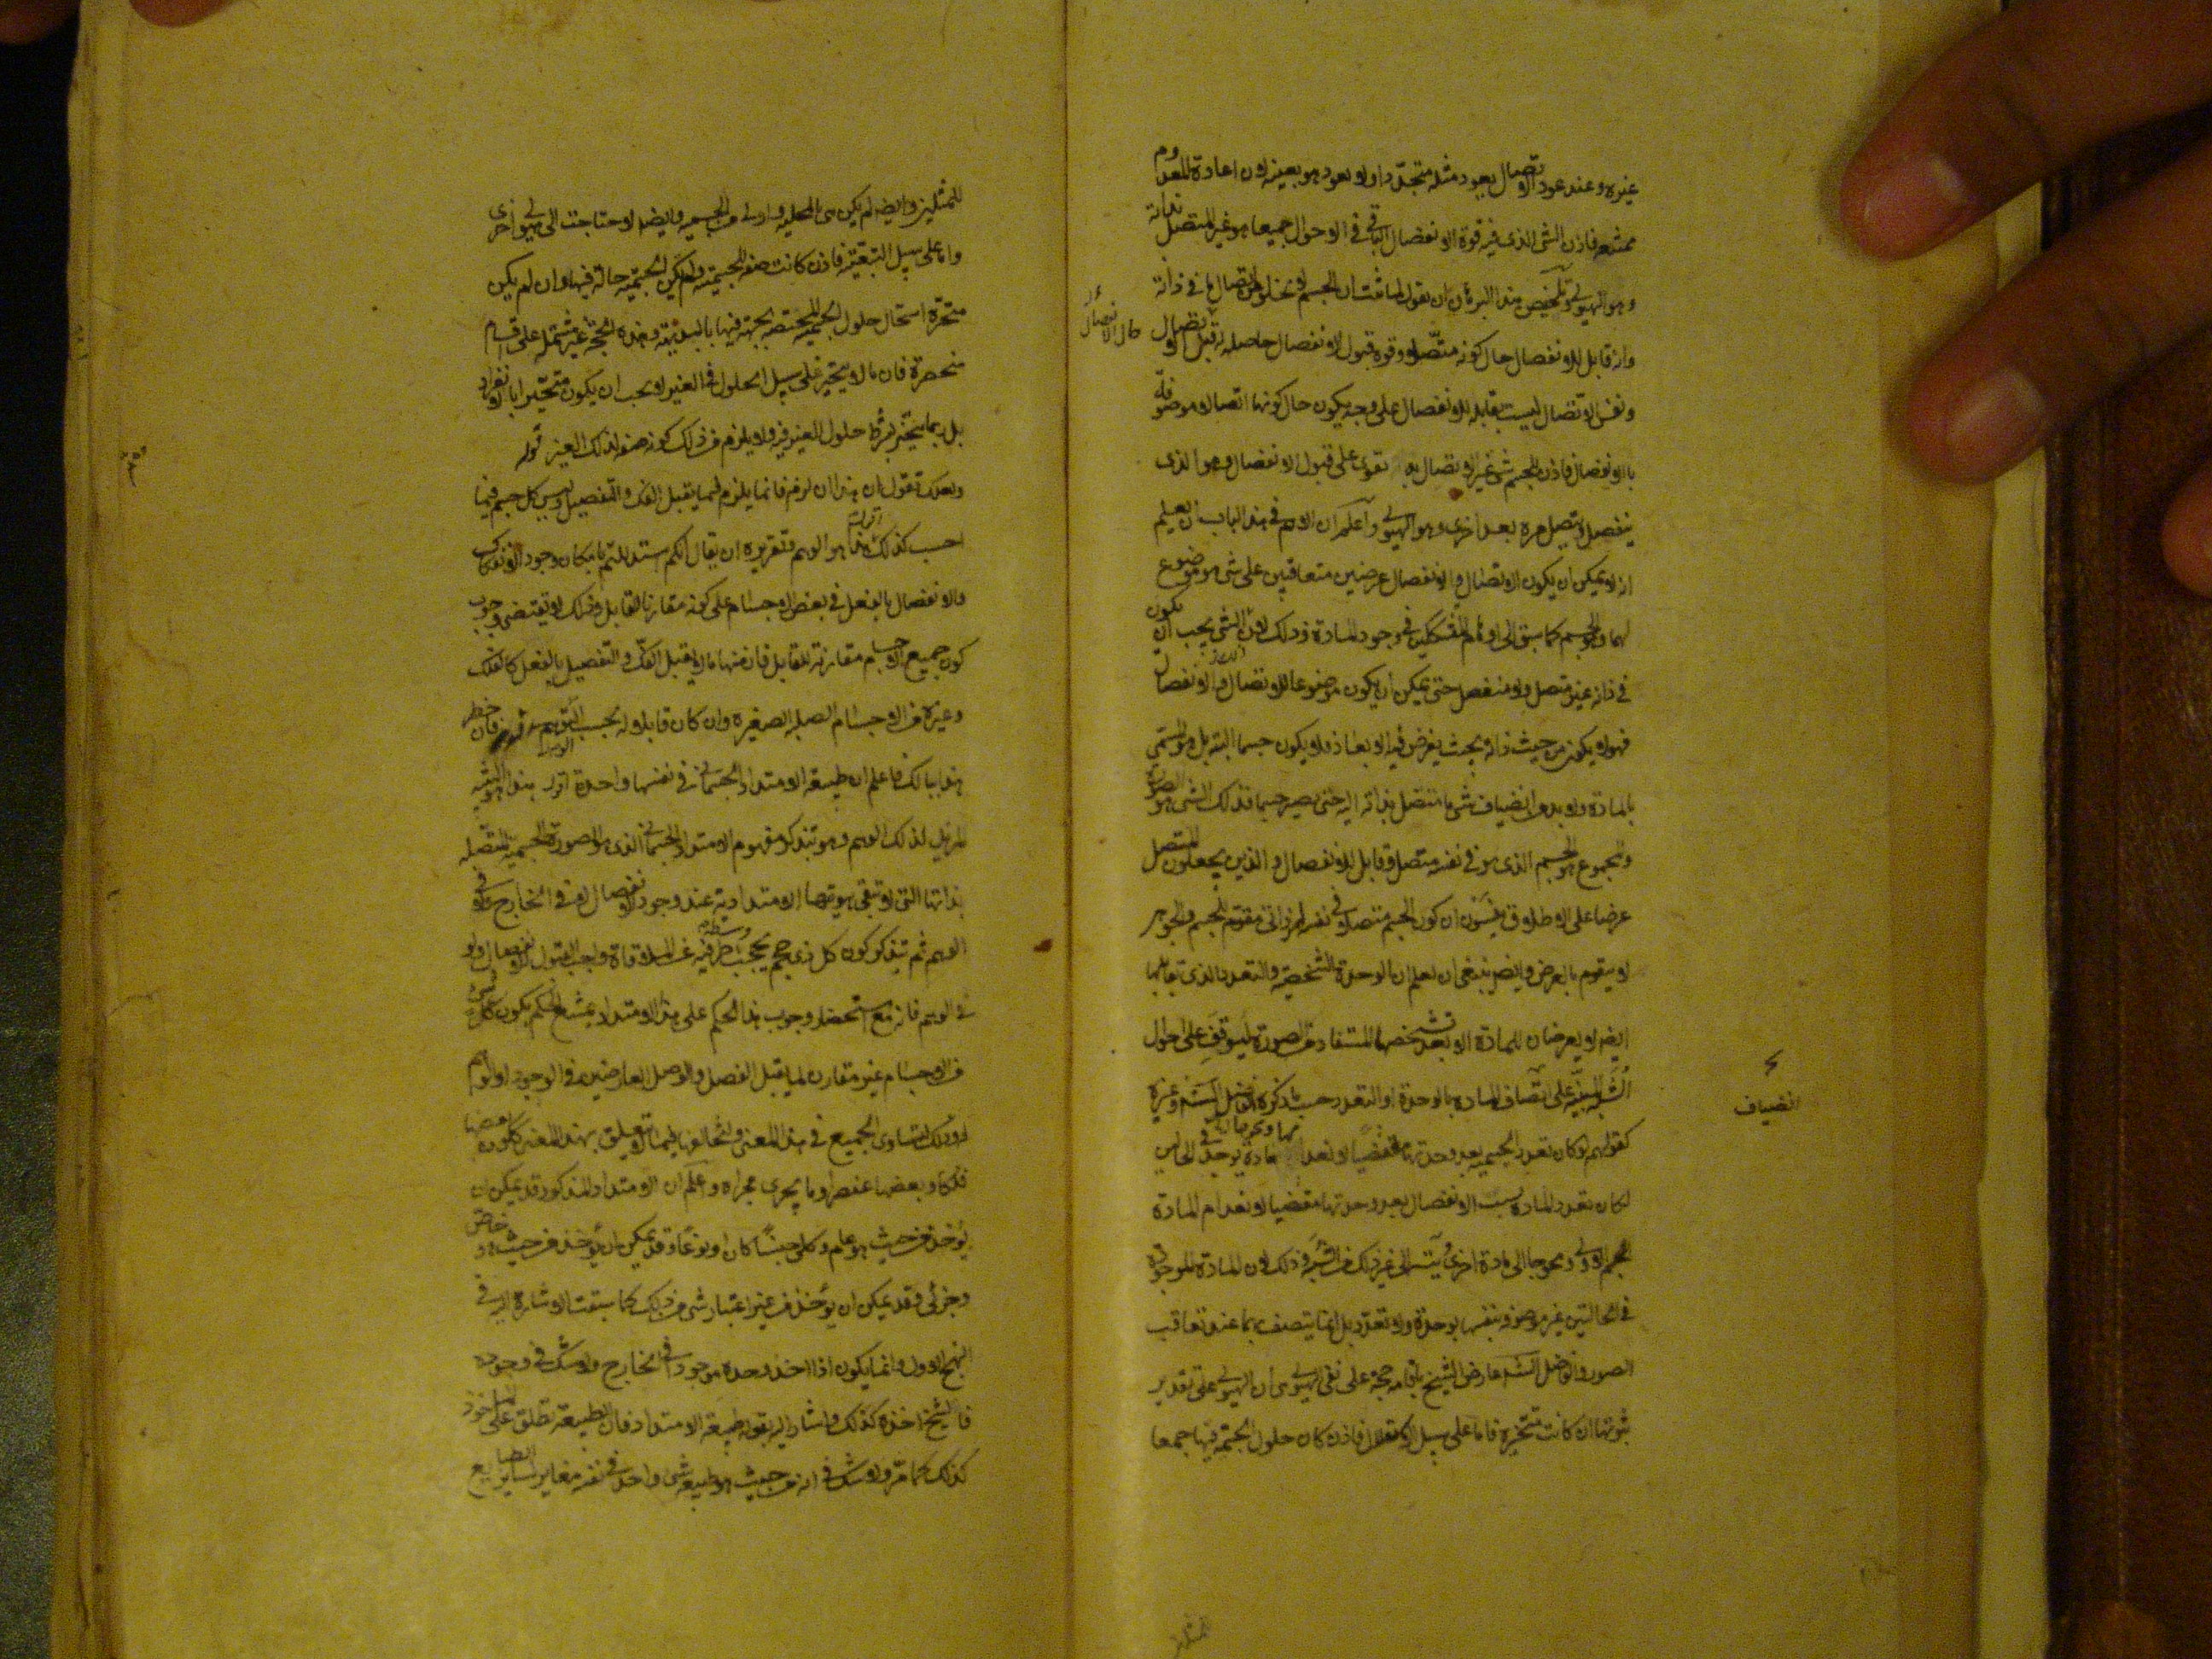 غيره وعند عود الاتصال يعود مثله متجدّدا ولا يعود هو بعينه لان اعادة المعدوم
ممتنعه فاذن الشئ الذى فيه قوة الانفصال الباقى فى الاحوال جميعا هو غير المتصل بذاته
وهو الهيولى وتلخيص هذا البرهان ان نقول لما ثبت ان الجسم لا يخلو عن اتصال ما فى ذاته
وانه قابل للانفصال حال كونه متّصلا وقوة قبول الانفصال حاصله له قبل الانفصال
حال الاتصال
ونفس الاتصال ليست بقابله للانفصال على وجه يكون حال كونها اتصالا موصوفة
بالانفصال فاذن للجسم شئ غير الاتصال به تقوى على قبول الانفصال وهو الذى
ينفصل ويتصل مرة بعد اخرى وهو الهيولى واعلم ان الاهم فى هذا الباب ان يعلم
انه لا يمكن ان يكون الاتصال والانفصال عرضين متعاقبين على شئ هو موضوع
لهما وهو الجسم كما سبق الى اوهام المتشككين فى وجود المادة وذلك لان الشئ يجب ان يكون
فى ذاته غير متصل ولا منفصل حتى يمكن ان يكون موضوعا للاتصال والانفصال
فهو لا يكون من حيث ذاته بحيث يفرض فيه الابعاد فلا يكون جسما البته بل هو المسمى
بالمادة ولا بد من انضياف شئ ما متصل بذاته اليه حتى يصير جسما فذلك الشئ هو الصورة
والمجموع هو الجسم الذى هو فى نفسه متصل وقابل للانفصال والذين يجعلون المتصل
عرضا على الاطلاق ينسون ان كون الجسم متصلا فى نفسه امر ذاتى مقوّم للجسم والجوهر
لا يتقوم بالعرض وايضا ينبغى ان تعلم ان الوحدة الشخصية والتعدد الذى يقابلها
ايضا لا يعرضان للمادة الا بعد تشخصها المستفاد من الصورة ليتوقف على احوال
الشبه المبنيّة على اتّصاف المادة بالوحدة او التعدد حسب ما ذكره الفاضل الشارح وغيره
انضياف
كقولهم لو كان تعدد الجسمية بعد وحدتها مقتضيا لانعدامها ومحوجا الى مادة توجد فى الحالين
لكان تعدد المادة بسبب الانفصال بعد وحدتها مقتضيا لانعدام المادة
الاولى ومحوجا الى مادة اخرى ويتسلسل الى غير ذلك من الشبه وذلك لان المادة الموجودة
فى الحالتين غير موصوفة بنفسها بوحدة ولا تعدّد بل انما يتصف بهما عند تعاقب
الصور والفاضل الشارح عارض الشيخ باقامة حجة على نفى الهيولى وهى ان الهيولى على تقدير
ثبوتها ان كانت متحيّزة فاما على سبيل الاستقلال فاذن كان حلول الجسمية فيها جمعا
للمثلين
للمثلين وايضا لم يكن هى المحلية اولى من الجسمية وايضا لاحتاجت الى هيولى اخرى
واما على سبيل التبعيّة فاذن كانت صفة للجسمية ولم يكن الجسمية حالّة فيها وان لم يكن
متحيّزة استحال حلول الجسمية المختصة بجهة فيها بالبديهة وهذه الحجة غير مشتملة على اقسام
منحصرة فان ما لا يتحيّز على سبيل الحلول فى الغير لا يجب ان يكون متحيّزا بالانفراد
بل ربما يتحيّز بشرط حلول الغير فيه ولا يلزم من ذلك كونه صفة لذلك الغير قوله
ولعلك تقول ان هذا ان لزم فانما يلزم فيما يقبل الفك والتفصيل وليس كل جسم فيما
احسب كذلك اقول هذا هو الوهم وتقريره ان يقال انكم استدللتم بامكان وجود الانفكاك
والانفصال بالفعل فى بعض الاجسام على كونه مقارنا للقابل وذلك لا يقتضى وجوب
كون جميع الاجسام مقارنة للقابل فان منها ما لا يقبل الفكّ والتفصيل بالفعل كالفلك
وغيره من الاجسام الصلبة الصغيرة وان كان قابلا له بحسب التوهم قوله فان خطر
هذا ببالك فاعلم ان طبيعة الامتداد الجسمانى فى نفسها واحدة اقول هذا هو التنبيه
المزيل لذلك الوهم وهو بتذكر مفهوم الامتداد الجسمانى الذى هو الصورة الجسمية المتصلة
بذاتها التى لا تبقى هويتها الامتدادية عند وجود الانفصال لا فى الخارج ولا فى
الوهم ثم تذكر كون كل ذى حجم يحجب وسطه طرفيه عن الملاقاة واجب القبول للانفصال ولو
فى الوهم فانه مع استحضار وجوب هذا الحكم على هذا الامتداد يمتنع الحكم بكون شئ
من الاجسام غير مقارن لما يقبل الفصل والوصل العارضين فى الوجود او الوهم
وذلك لتساوى الجميع فى هذا المعنى وتخالفها فيما لا تعلق بهذا المعنى ككون بعضها
فلكا وبعضها عنصرا وما يجرى مجراه واعلم ان الامتداد المذكور قد يمكن ان
يؤخذ من حيث هو عام وكلى جنسًا كان او نوعًا وقد يمكن ان يؤخذ من حيث هو خاص
وجزئى وقد يمكن ان يؤخذ من غير اعتبار شئ من ذلك كما سبقت الاشارة اليه فى
النهج الاول وانما يكون اذا اخذ وحده موجودا فى الخارج ولا شكّ فى وجوده
فالشيخ اخذه كذلك واشار اليه بقوله طبيعة الامتداد فان الطبيعة تطلق على الماخوذ
كذلك كما مرّ ولا شك فى انه من حيث هو طبيعة شئ واحد فى نفسه مغاير لساير الطبايع